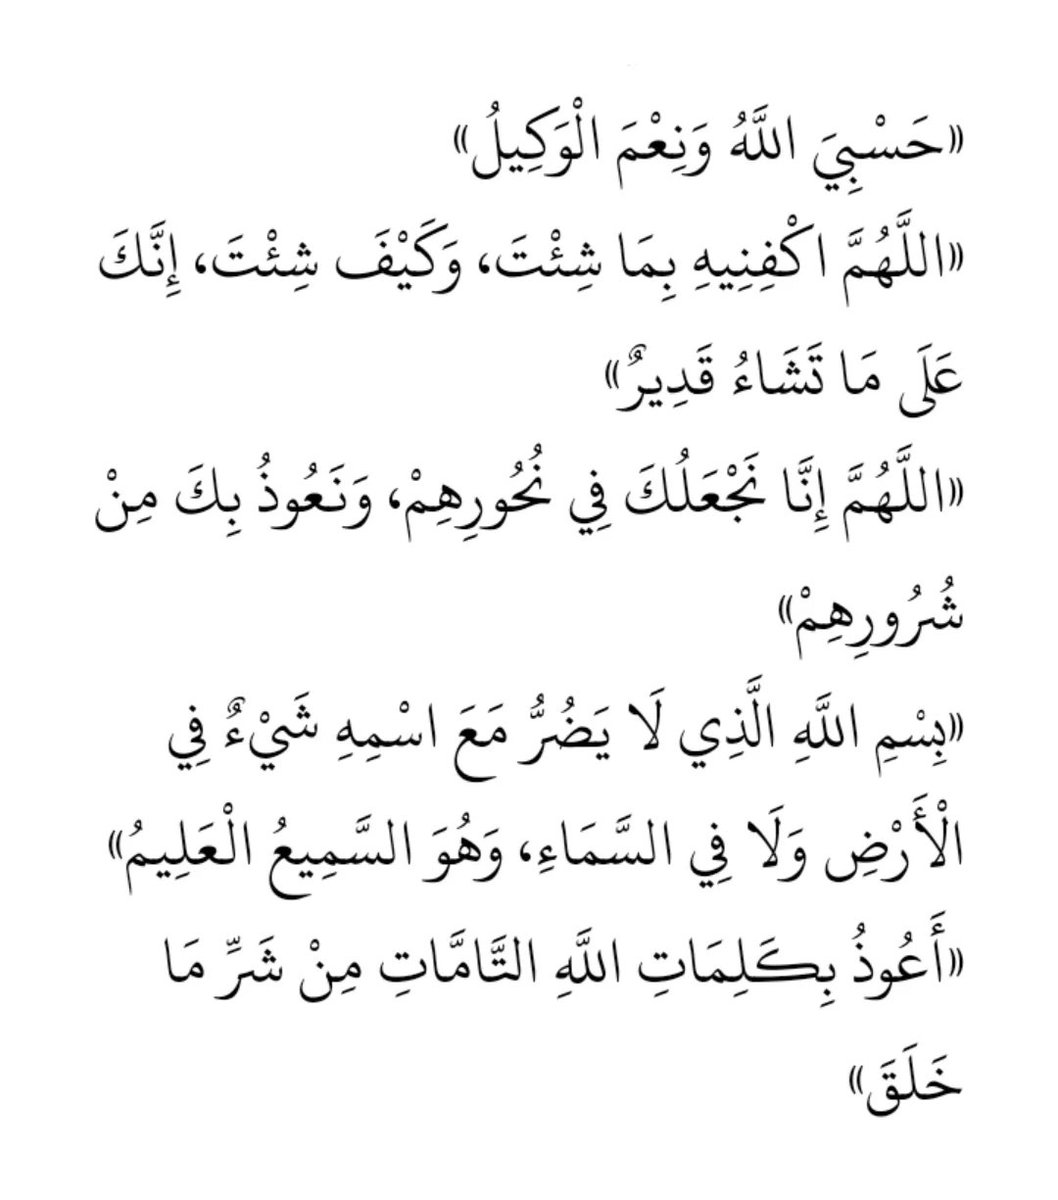 «حَسْبِيَ اللَّهُ وَنِعْمَ الْوَكِيلُ»
«اللَّهُمَّ اكْفِنِيهِ بِمَا شِئْتَ، وَكَيْفَ شِئْتَ، إِنَّكَ
عَلَى مَا تَشَاءُ قَدِيرٌ»
«اللَّهُمَّ إِنَّا نَجْعَلُكَ فِي نُحُورِهِمْ، وَنَعُوذُ بِكَ مِنْ
شُرُورِهِمْ»
«بِسْمِ اللَّهِ الَّذِي لَا يَضُرُّ مَعَ اسْمِهِ شَيْءٌ فِي
الْأَرْضِ وَلَا فِي السَّمَاءِ، وَهُوَ السَّمِيعُ الْعَلِيمُ»
«أَعُوذُ بِكَلِمَاتِ اللَّهِ التَّامَّاتِ مِنْ شَرِّ مَا
خَلَقَ»